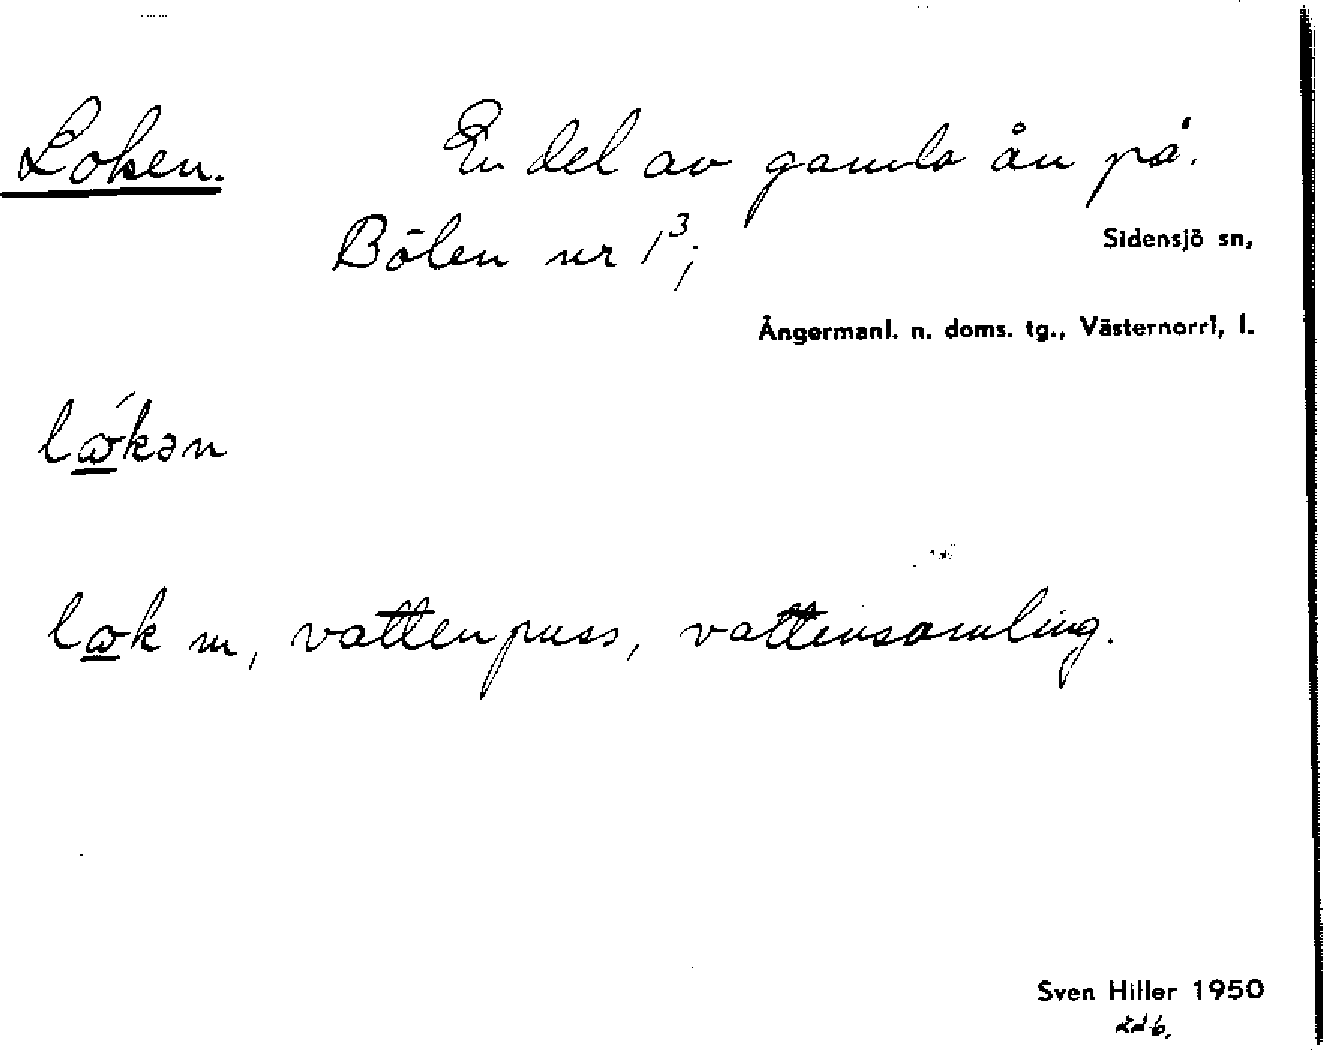 Loken. En del av gamla ån på.
Bölen nr 1³;
Sidensjö sn,
Ångermanl. n. doms. tg., Västernorrl, l.
lókən
lok m, vattenpuss, vattensamling.
Sven Hiller 1950